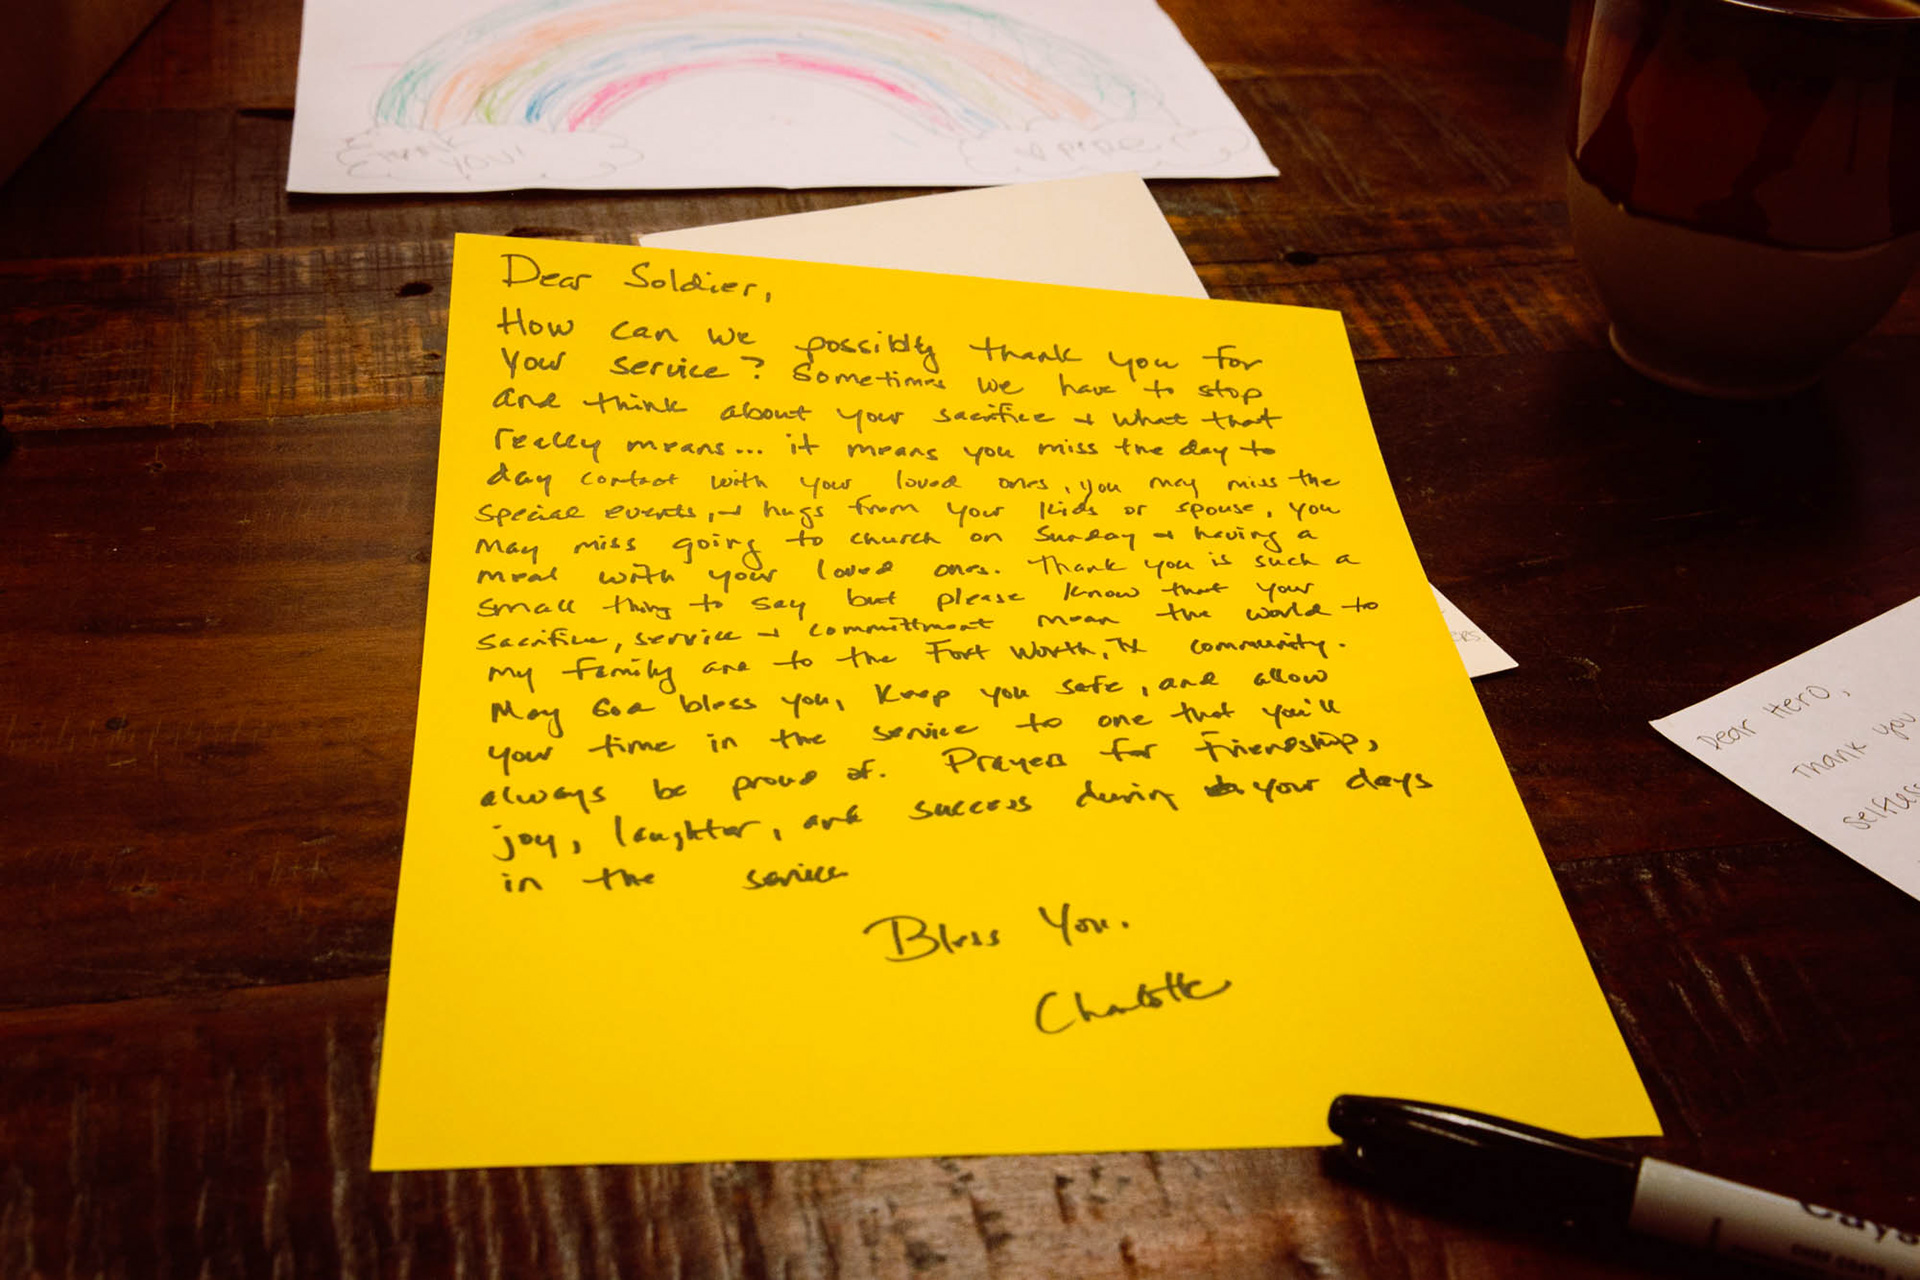 THANK
YOU!
Dear Soldier,
How can we possibly thank you for
your service? Sometimes we have to stop
and think about your sacrifice + what that
really means... it means you miss the day to
day contact with your loved ones, you may miss the
special events, + hugs from your kids or spouse, you
may miss going to church on Sunday + having a
meal with your loved ones. Thank you is such a
small thing to say but please know that your
sacrifice, service + committment mean the world to
my family and to the Fort Worth, TX community.
May God bless you, keep you safe, and allow
your time in the service to one that you'll
always be proud of. Prayers for friendship,
joy, laughter, and success during your days
in the service
Bless You.
Charlotte
Dear Hero,
Thank you